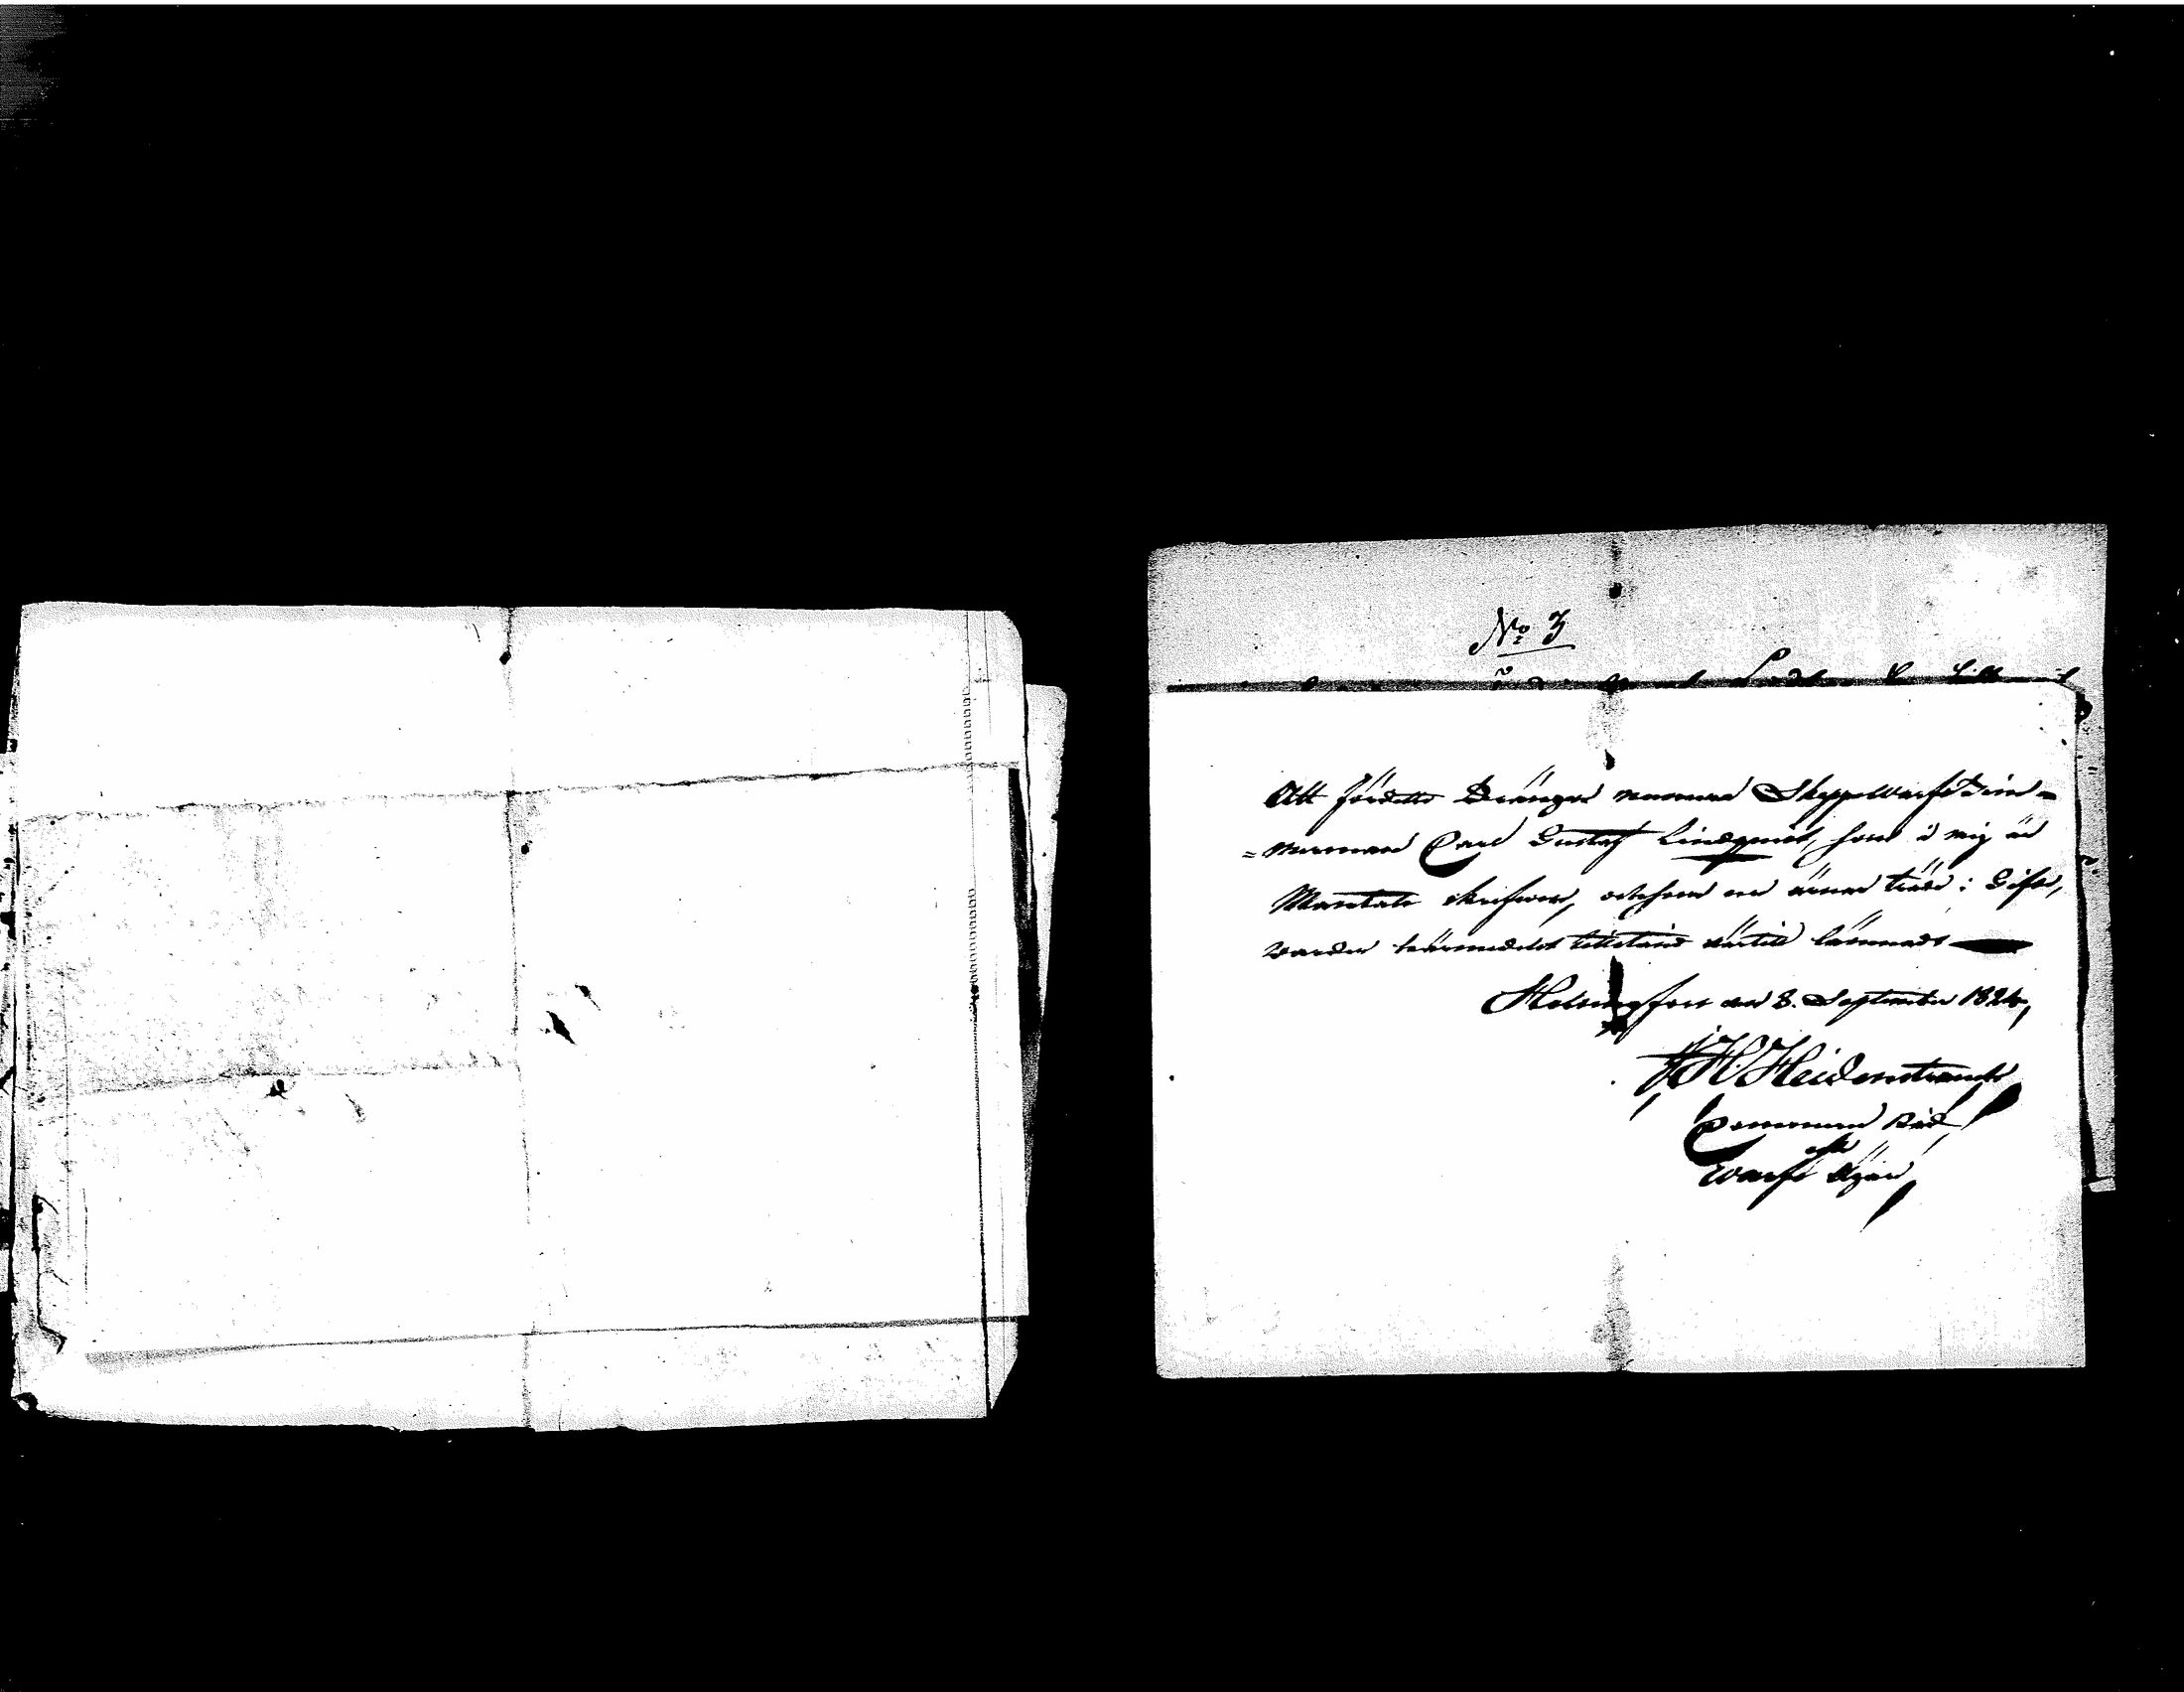 No 3
Att föredetto Drängen numera Skeppswarfs Tim=
=merman Carl Gustaf Lindqvist, som å mig är
Mantals skrifwen, och som nu ärnar träda i Gifte,
warder härmedelst tillstånd dertill lämnadt
Helsingfors den 3. September 1824,
H. Heidenstrauch
Commerce Råd
och
Warfs Ägare